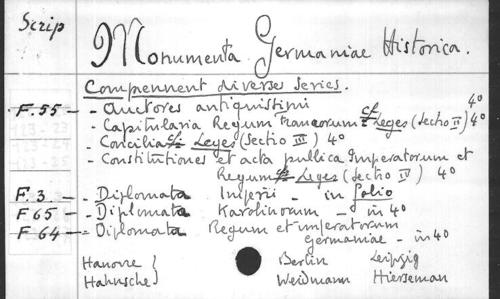 Scrip
Monumenta Germaniae Historica.
Compennent diverses series.
F.55 - Auctores antiquistimi 4°
- Capitularia Regum Francorum cf Leges (Sectio II) 4°
- Concilia cf Leges (Sectio III) 4°
- Constitutiones et acta publica Imperatorum et
Regum cf Leges (Sectio IV) 4°
F.3. - Diplomata Imperii - in folio
F65 - Diplomata Karolinorum - in 4°
F64 - Diplomata Regum et imperatorum
Germaniae - in 4°
Hanovre } Berlin Leipzig
Hahnsche } Weidmann Hierseman